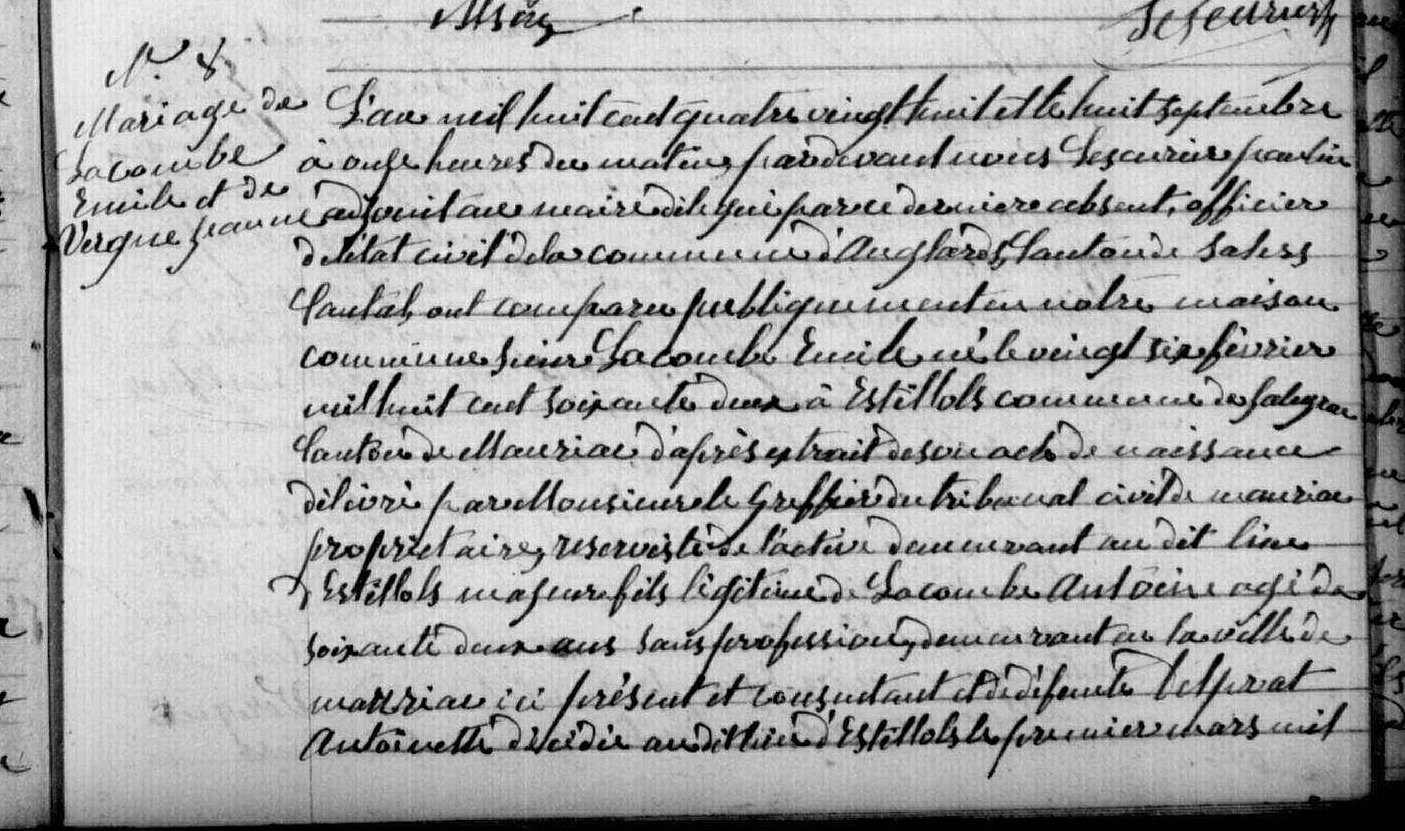 N° 8
Mariage de
Lacombe
Emile et de
Vergne jeanne
L'an mil huit cent quatre vingt huit et le huit septembre
à onze heures du matin, pardevant nous Lescurier paulin
adjoint au maire délégué par ce dernier absent, officier
de l'état civil de la commune d'Anglards, Canton de Salers
Cantal, ont comparu publiquement en notre maison
commune sieur Lacombe Emile né le vingt six février
mil huit cent soixante deux à Estillols commune de
Canton de Mauriac d'après extrait de son acte de naissance
délivré par Monsieur le Greffier du tribunal civil de mauriac
propriétaire, réserviste de l'active demeurant au dit lieu
d'Estillols majeur fils légitime de Lacombe Antoine agé de
soixante deux ans sans profession, demeurant en la ville de
mauriac ici présent et consentant et de défunte Delprat
Antoinette décédée au dit lieu d'Estillols le premier mars mil